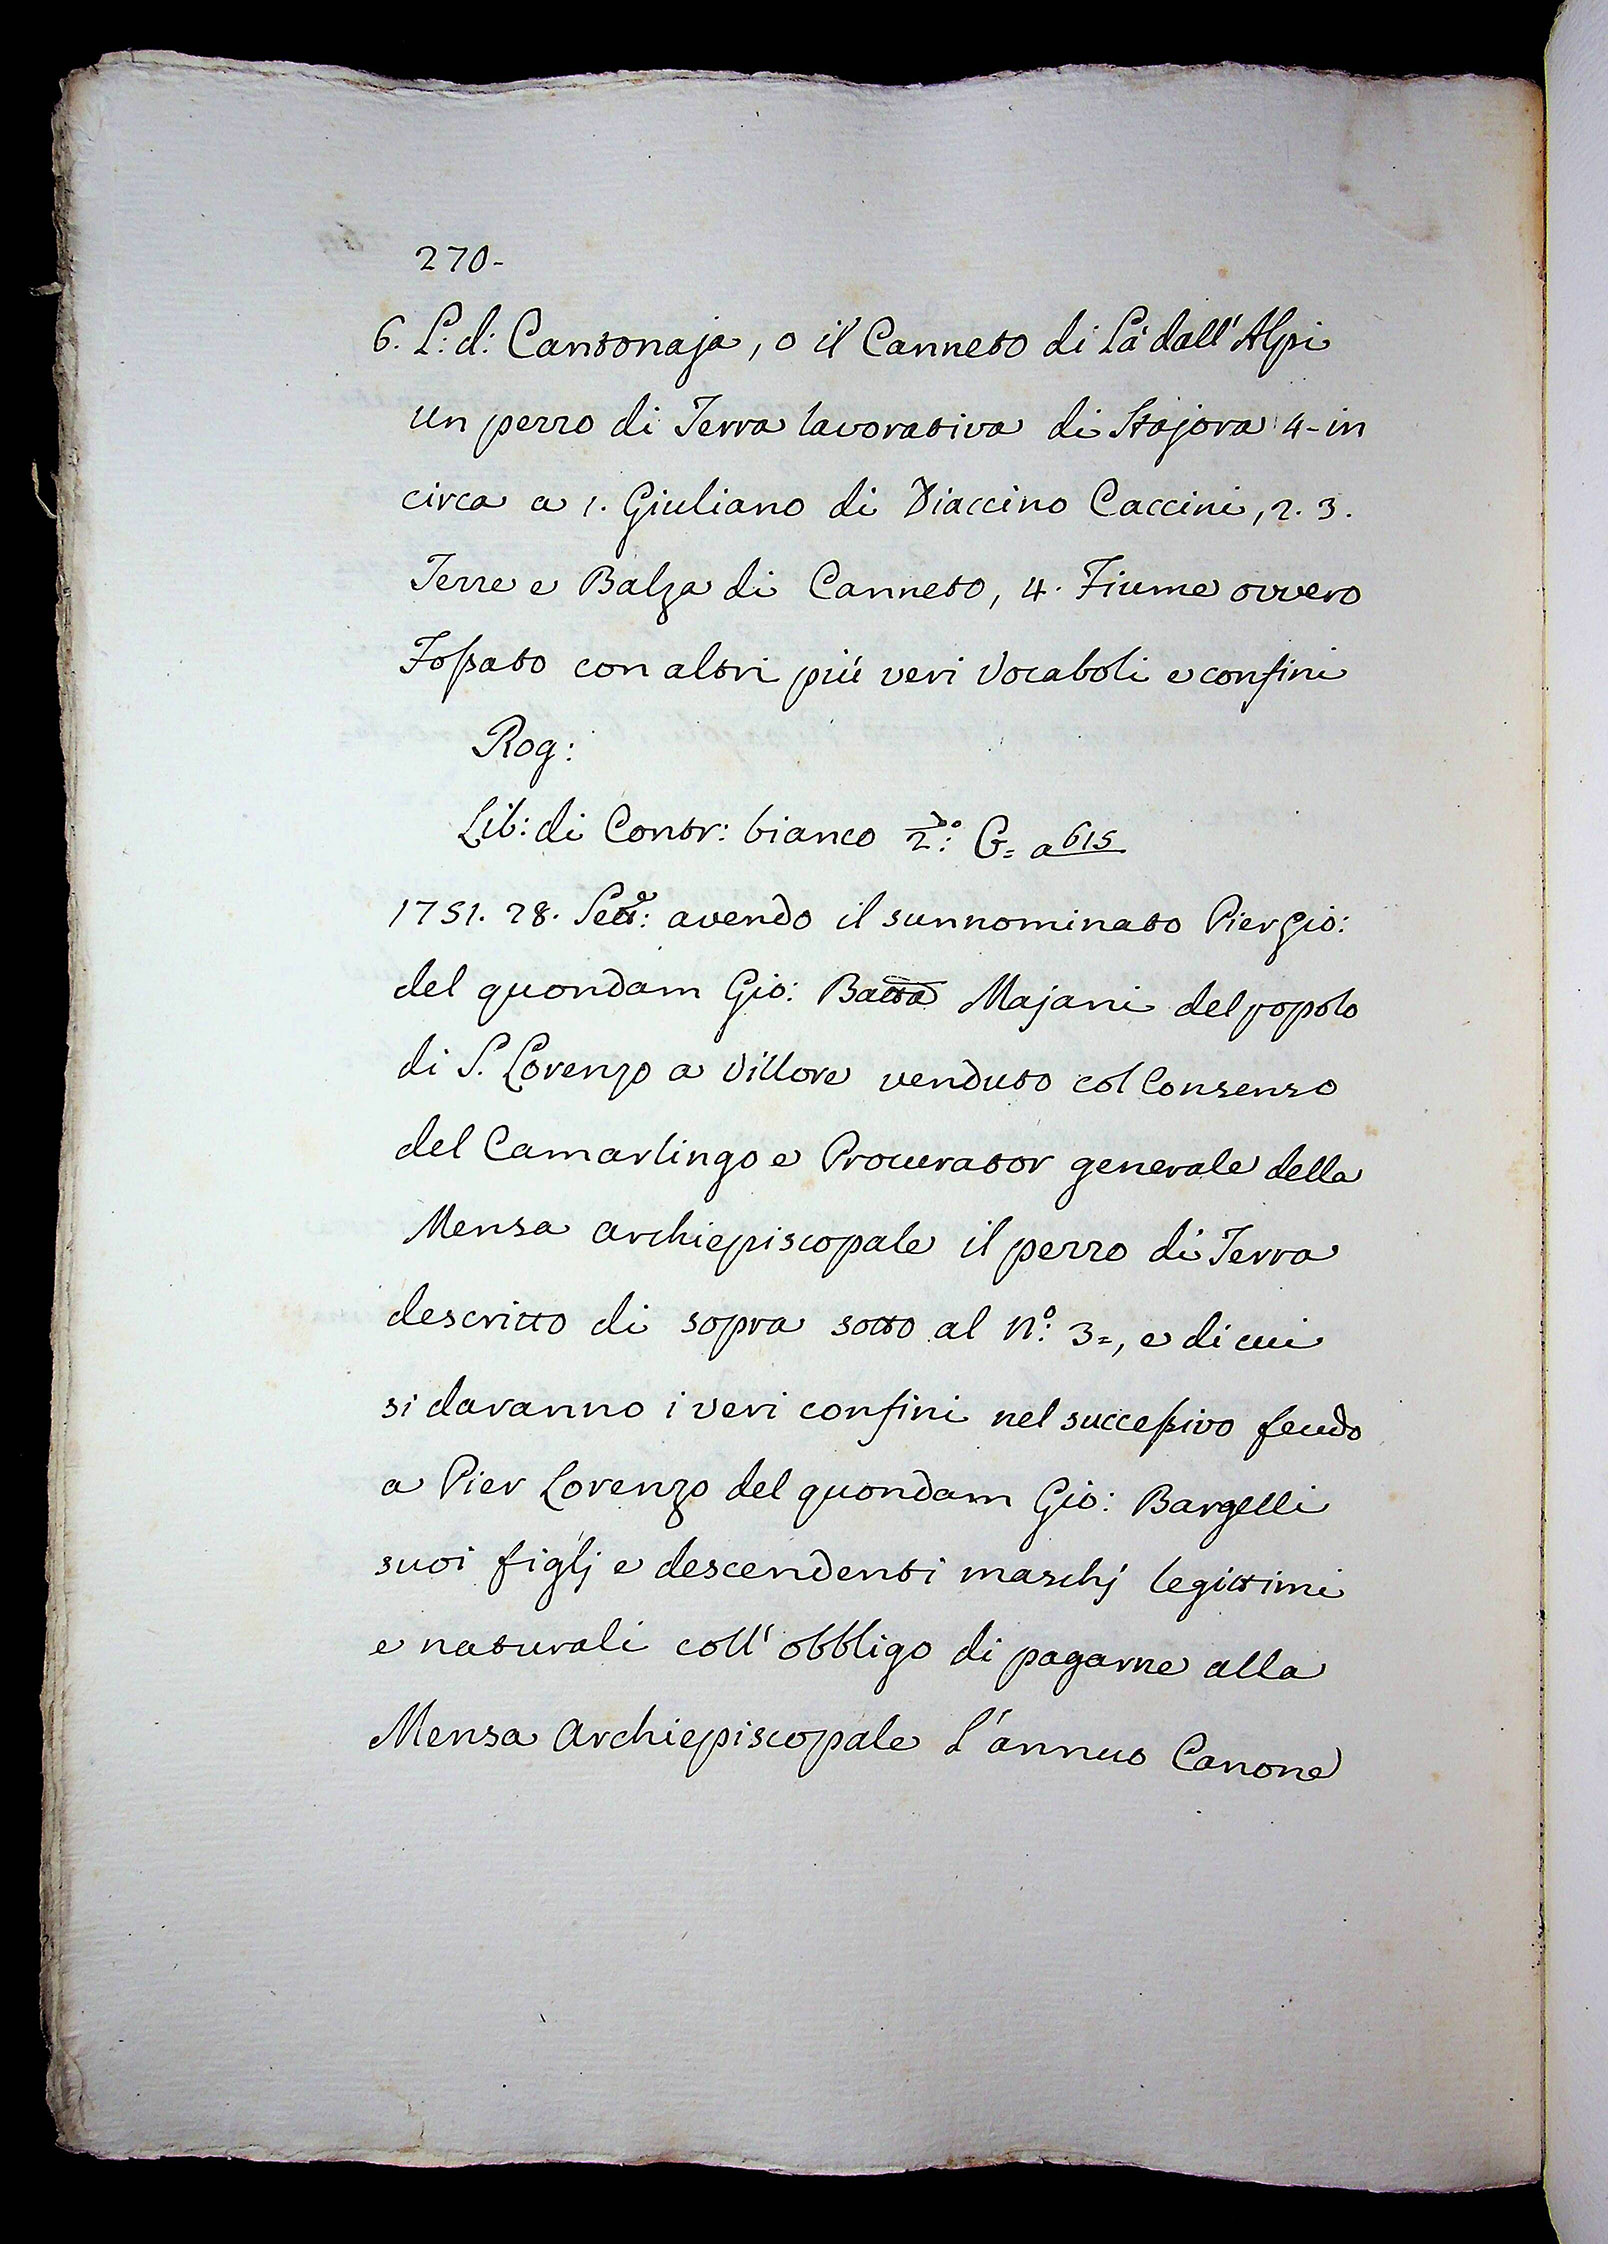 270-
6. L: d: Cantonaja, o il Canneto di Là dall' Alpi
un pezzo di Terra lavorativa di Stajora 4- in
circa a 1. Giuliano di Diaccino Caccini, 2. 3.
Terre e Balza di Canneto, 4. Fiume ovvero
Foſsato con altri più veri Vocaboli e confini
Rog:
Lib: di Contr: bianco 2.º G= a 615
1751. 28. Sett.e: avendo il sunnominato Pier Gio:
del quondam Gio: Batta Majani del popolo
di S. Lorenzo a Villore venduto col Consenso
del Camarlingo e Procurator generale della
Mensa Archiepiscopale il pezzo di Terra
descritto di sopra sotto al N.º: 3=, e di cui
si daranno i veri confini nel succeſsivo feudo
a Pier Lorenzo del quondam Gio: Bargelli
suoi figlj e descendenti maschj legittimi
e naturali coll' obbligo di pagarne alla
Mensa Archiepiscopale l'annuo Canone